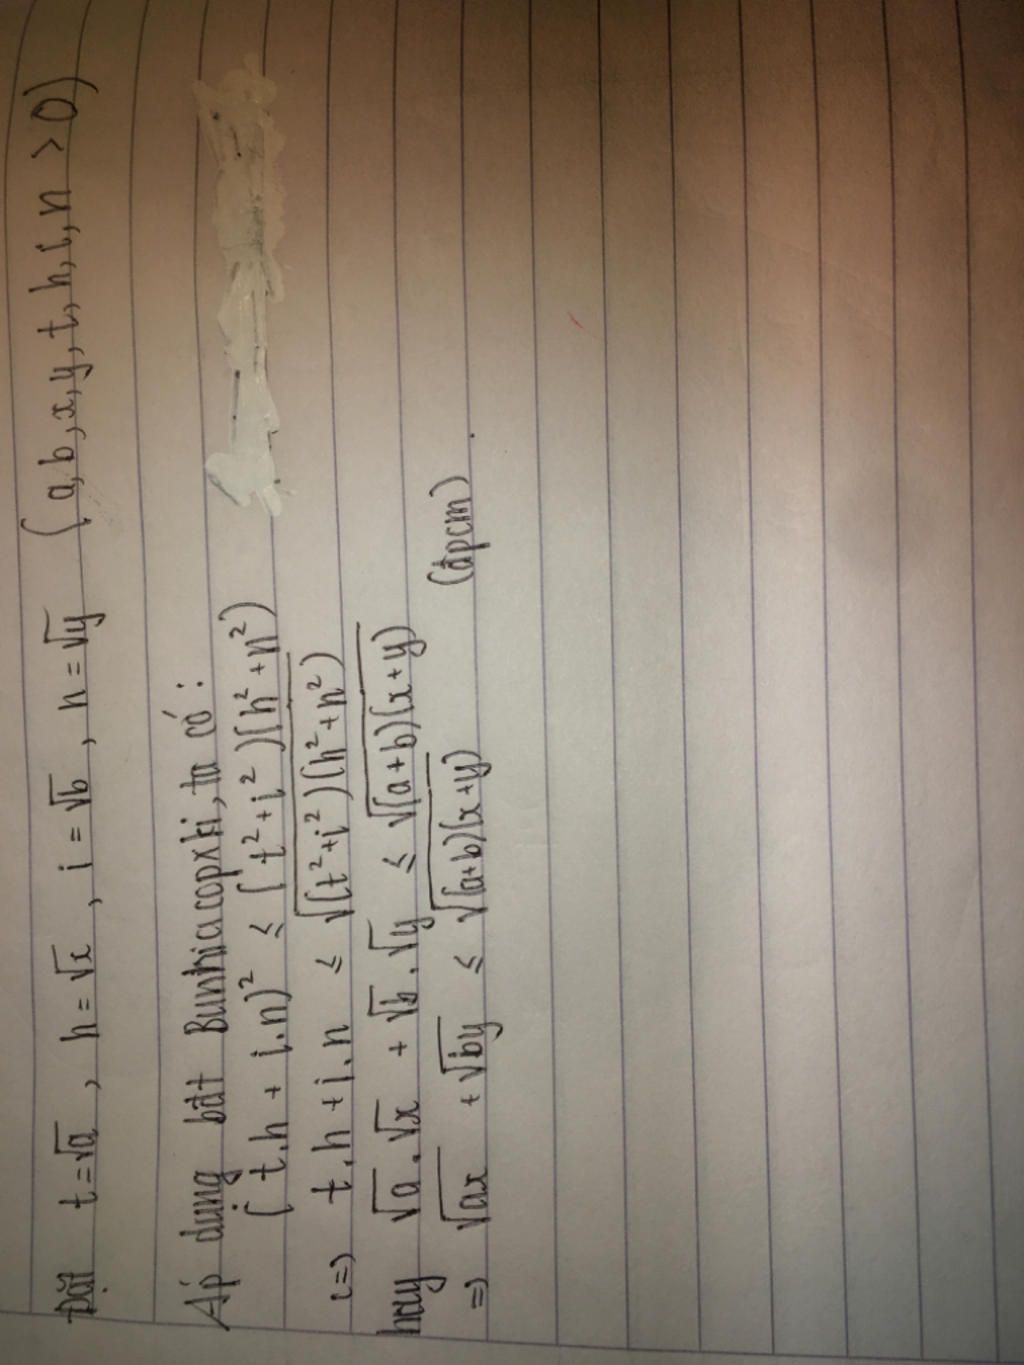 Đặt t=√a, h=√x, i=√b, n=√y (a,b,x,y,t,h,i,n >0)
Áp dụng bất Bunhiacopxki, ta có:
(t.h + i.n)² ≤ (t²+i²)(h²+n²)
<=> t.h+i.n ≤ √(t²+i²)(h²+n²)
hay √a.√x + √b.√y ≤ √(a+b)(x+y)
=> √ax + √by ≤ √(a+b)(x+y) (đpcm).